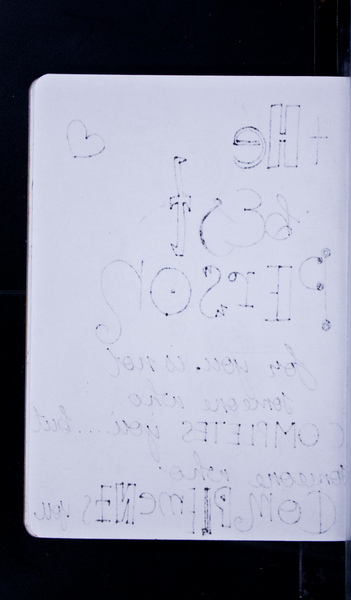 tHe
bEst
PERSON
for you. is not
someone who
COMPlETES you... but
someone who
COMPlImeNts you.